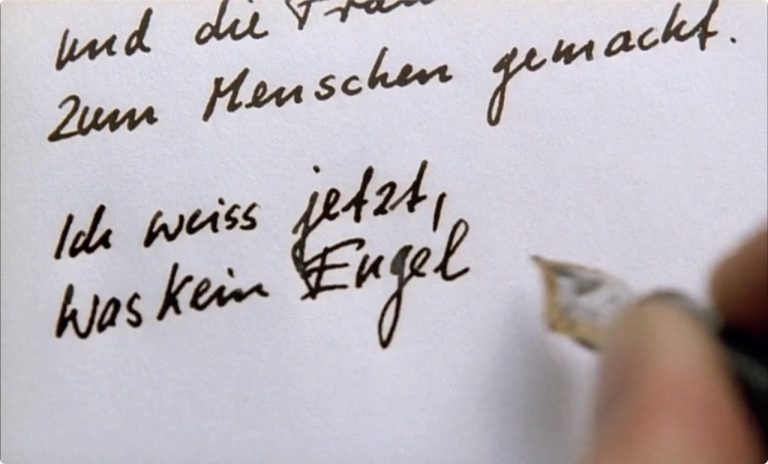 und die Frau
zum Menschen gemacht.
Ich weiss jetzt,
was kein Engel